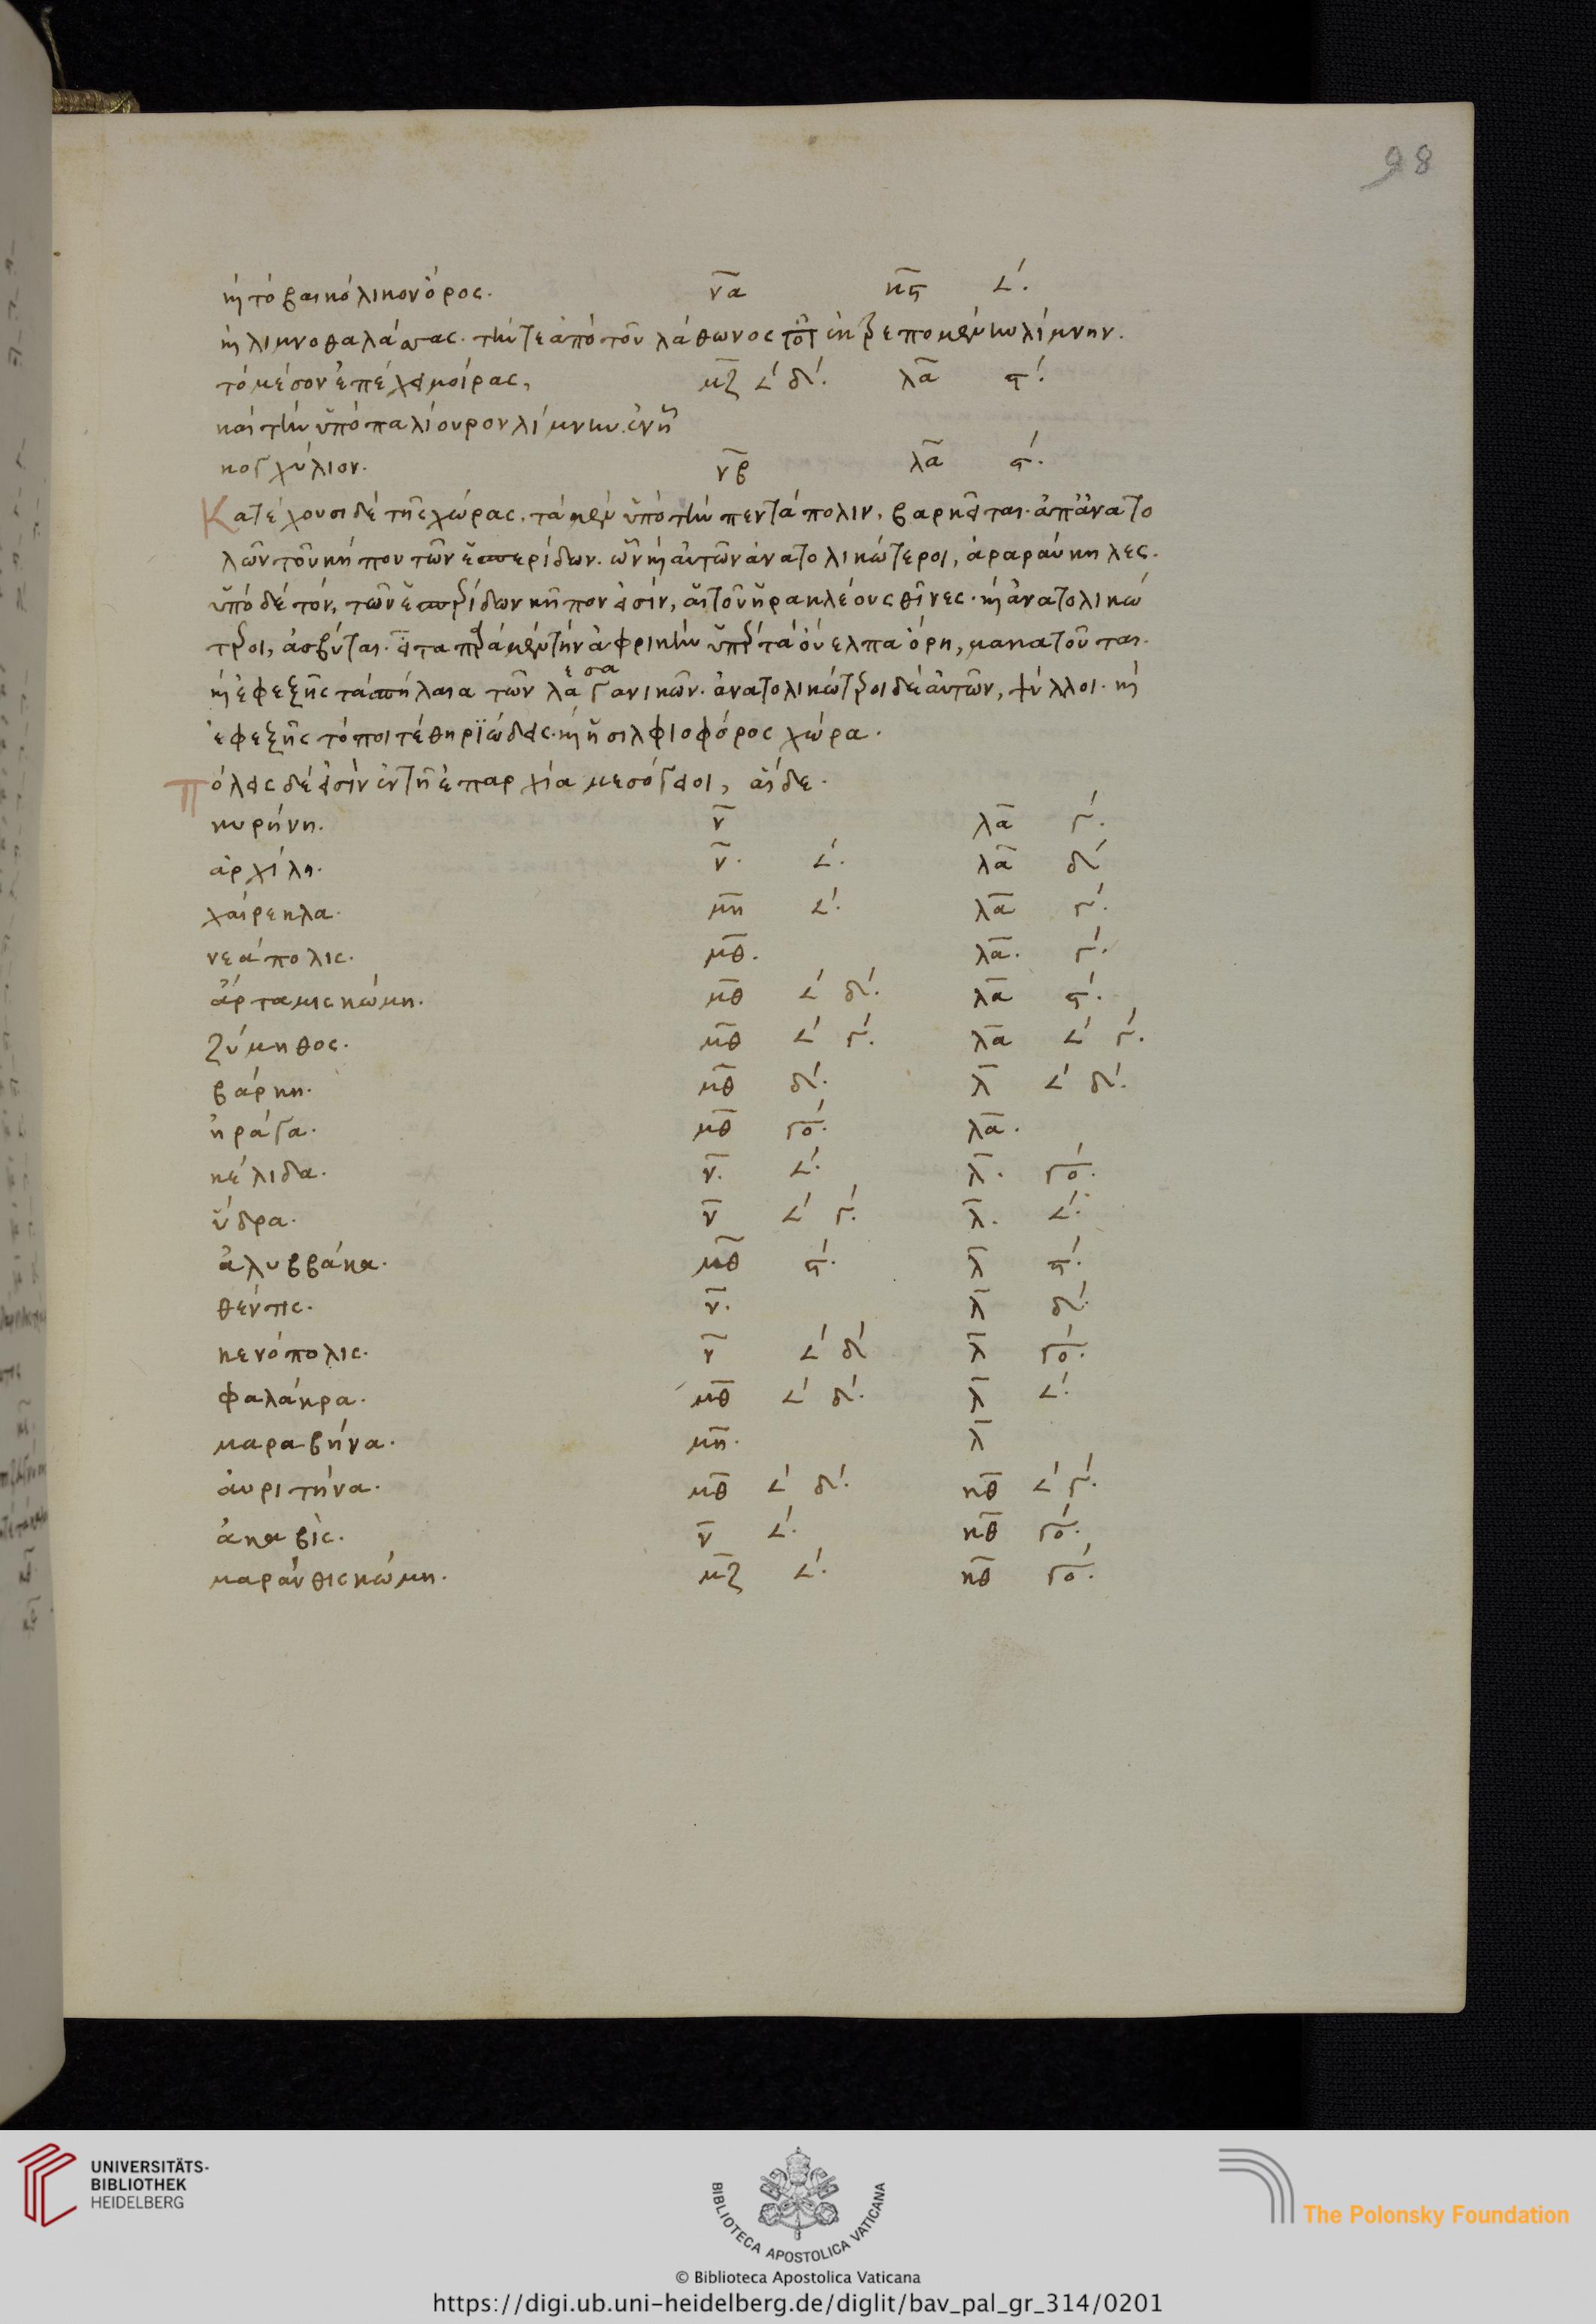 98
κ τὸ βαικόλικον ὄρος. να κϛ 𐅵´.
κ λιμνοθαλάσσας. τήν τε ἀπὸ τοῦ λάθωνος ποτ ἐκτρεπομένην λίμνην.
τὸ μέσον ἐπέχει μοίρας, μζ 𐅵´ δ´. λα ϛ´.
καὶ τὴν ὑπὸ παλίουρον λίμνην. ἐν ᾗ
κογχύλιον. νβ λα ϛ´.
Κατέχουσι δὲ τῆς χώρας. τὰ μὲν ὑπὸ τὴν πεντάπολιν. βαρκεῖται. ἀπὰνατο
λῶν τοῦ κήπου τῶν ἑσπερίδων. ὧν κ αὐτῶν ἀνατολικώτεροι, ἀραραύκηλες.
ὑπὸ δὲ τόν, τῶν ἑσπερίδων κῆπον εἰσίν, αἵ τοῦ ἡρακλέους θῖνες. κ ἀνατολικώ
τεροι, ἀσβύται. εἶτα παρὰ μὲν τὴν ἀφρικὴν ὑπὲρ τὰ ὀύελπα ὄρη, μακατοῦται.
εσα
κ ἐφεξῆς τὰ σπήλαια τῶν λαγανικῶν. ἀνατολικώτεροι δὲ αὐτῶν, ψύλλοι. κ
ἐφεξῆς τόποι τὲ θηρϊώδεις. κ ἡ σιλφιοφόρος χώρα.
Πόλεις δέ εἰσὶν ἐν τῇ ἐπαρχία μεσόγειοι, αἵδε.
κυρήνη. ν λα γ´.
ἀρχίλη. ν. 𐅵´. λα δ´
χαίρεκλα. μη 𐅵´. λα γ´.
νεάπολις. μθ. λα. γ´.
ἄρταμις κώμη. μθ 𐅵´ δ´. λα ϛ´.
ζύμηθος. μθ 𐅵´ γ´. λα 𐅵´ γ´.
βάρκη. μθ δ´. λ 𐅵´ δ´.
ἠράγα. μθ γο´. λα.
κέλιδα. ν. 𐅵´. λ. γο´.
ὕδρα. ν 𐅵´ γ´. λ. 𐅵´.
ἀλυββάκα. μθ ϛ´. λ ϛ´.
θέντις. ν. λ δ´.
κενόπολις. ν 𐅵´ δ´ λ γο´.
φαλάκρα. μθ 𐅵´ δ´. λ 𐅵´.
μαραβήνα. μη. λ
ἀυριτήνα. μθ 𐅵´ δ´. κθ 𐅵´ γ´.
ἀκαβὶς. ν 𐅵´. κθ γο´.
μαράνθις κώμη. μζ 𐅵´. κθ γο´.
UNIVERSITÄTS-
BIBLIOTHEK
HEIDELBERG
BIBLIOTECA APOSTOLICA VATICANA
The Polonsky Foundation
© Biblioteca Apostolica Vaticana
https://digi.ub.uni-heidelberg.de/diglit/bav_pal_gr_314/0201